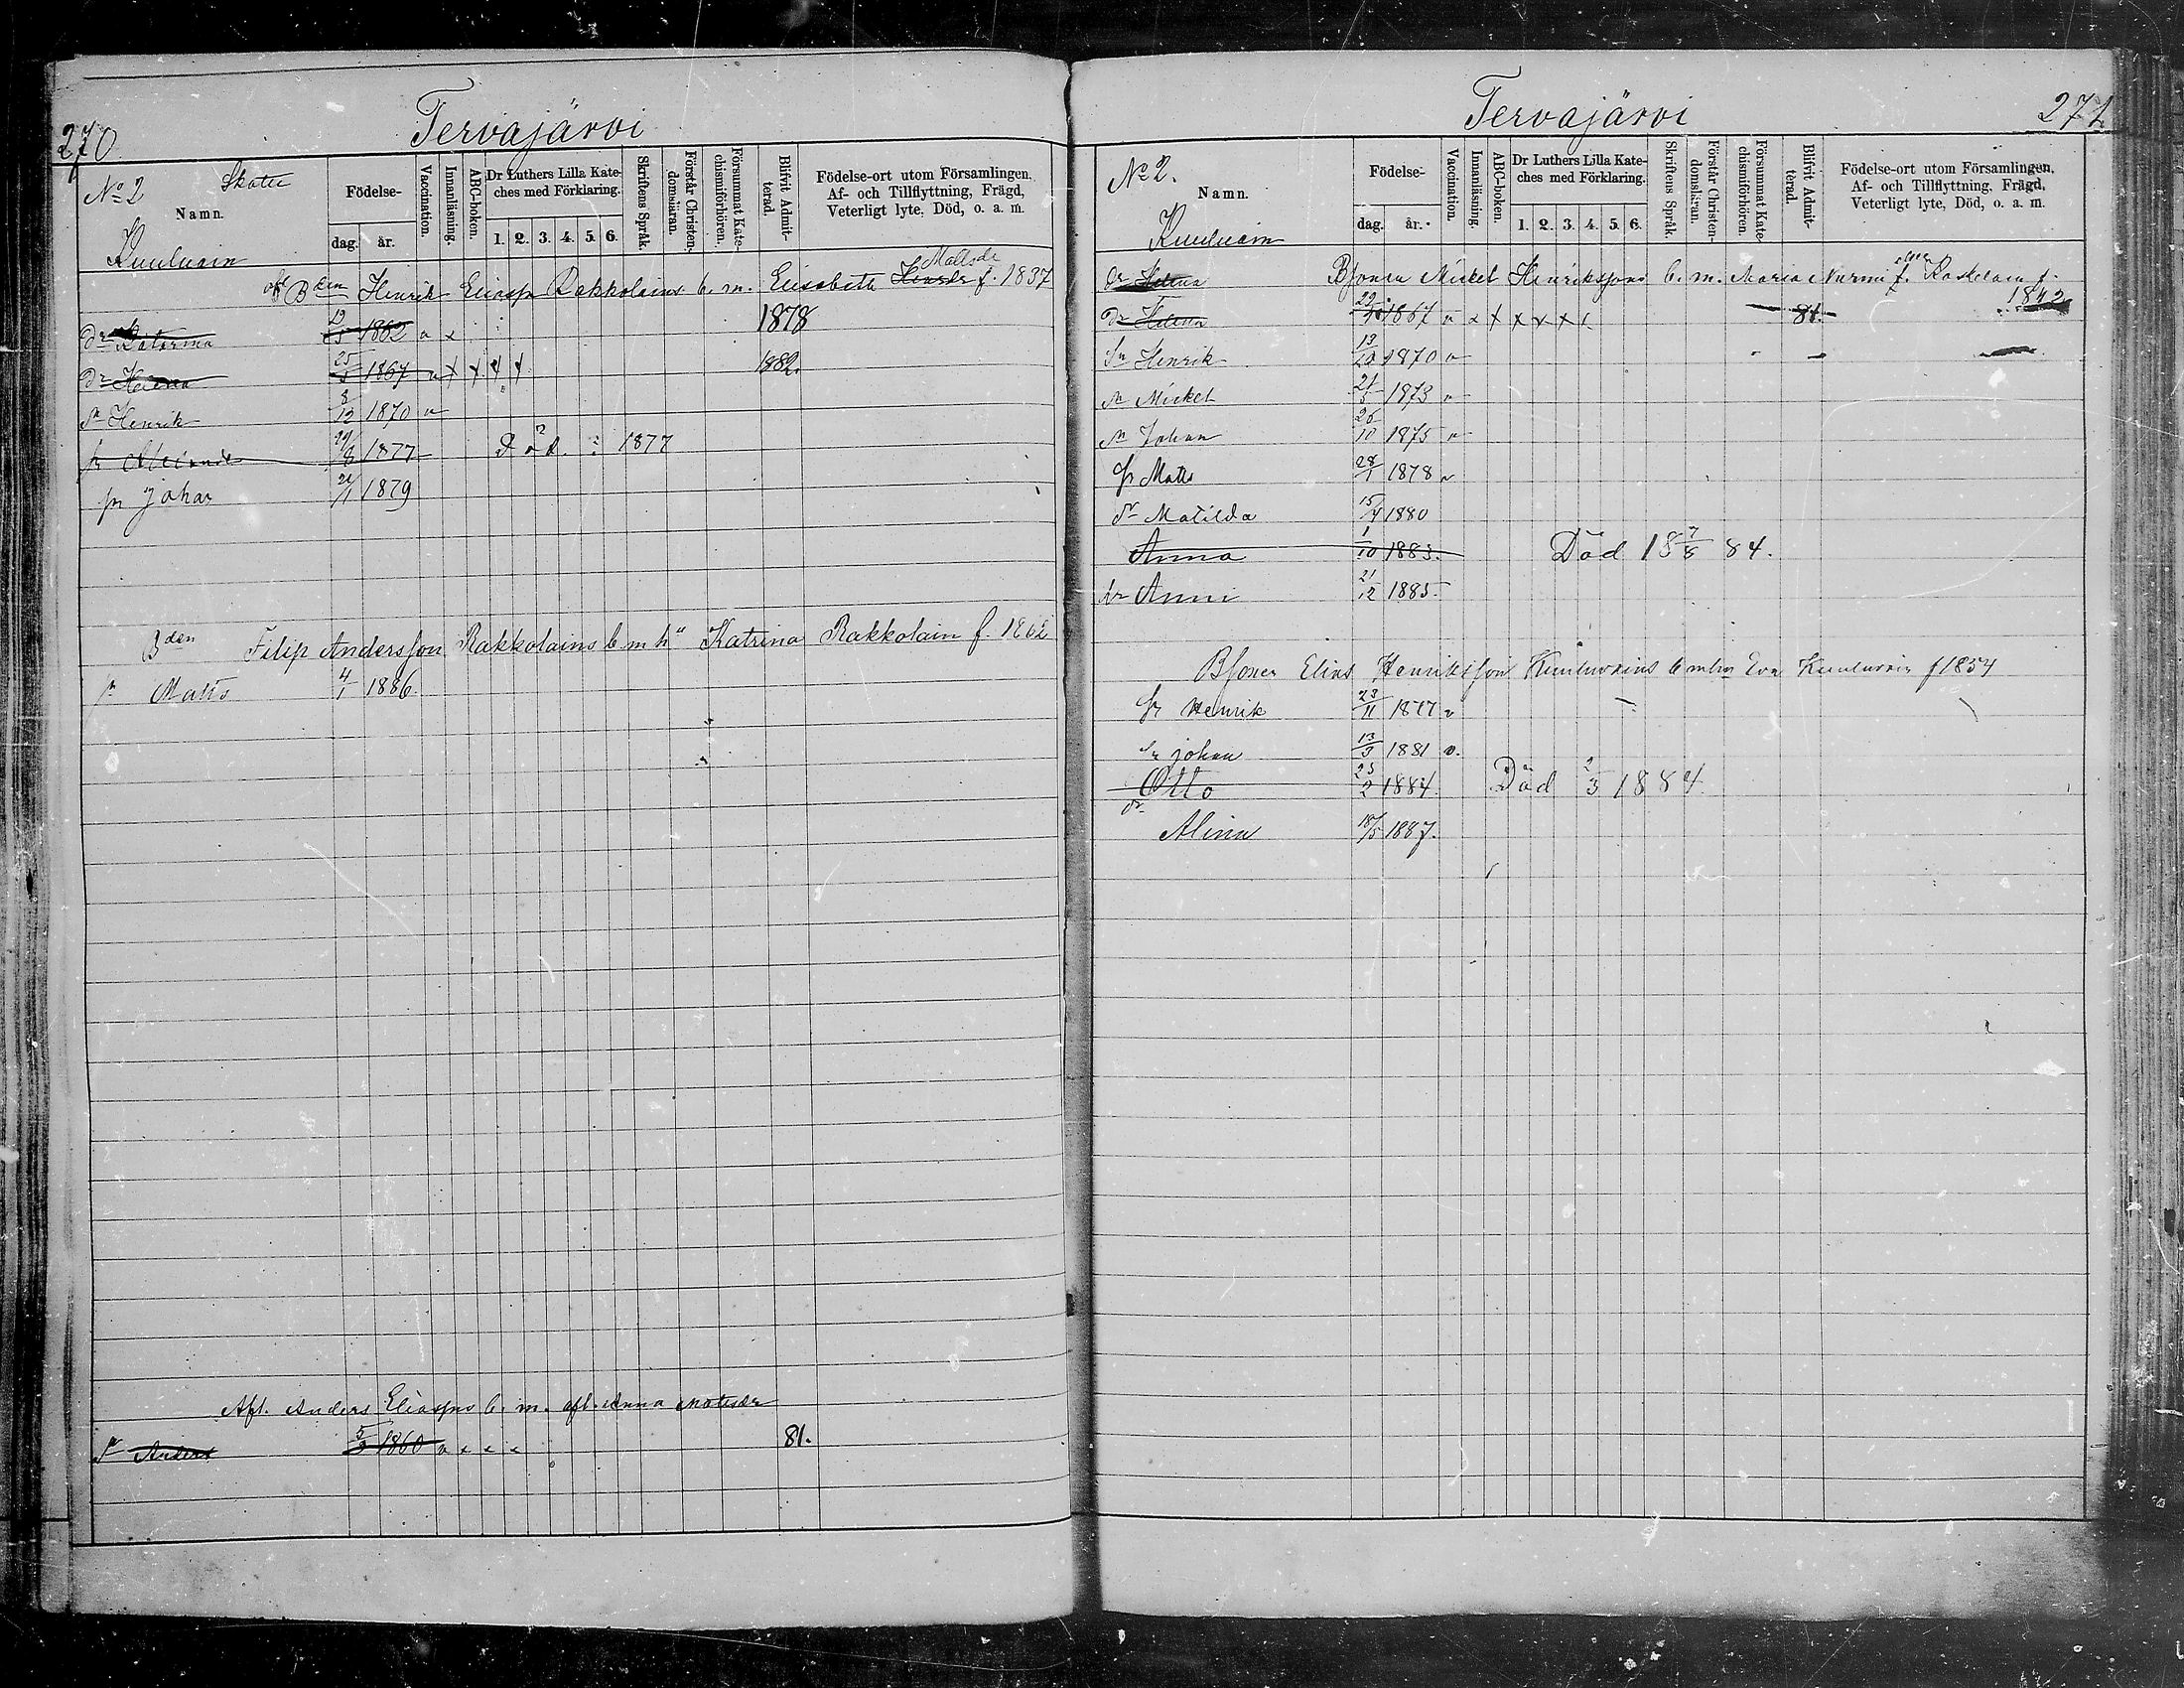 270
Tervajärvi
No 2
Skatte
Namn.
Födelse-
dag.
år.
Vaccination.
Innanläsning.
ABC-boken.
Dr Luthers Lilla Kate-
ches med Förklaring.
1. 2. 3. 4. 5. 6.
Skriftens Språk.
Förstår Christen-
domsläran.
Försummat Kate-
chismiförhören.
Blifvit Admit-
terad.
Födelse-ort utom Församlingen.
Af- och Tillflyttning, Frägd,
Veterligt lyte, Död, o. a. m.
Kuuluain
Bden Henrik Eliasn Rakkolains b. m. Elisabeth Mattsdr f. 1837
Dr Katarina 1862 1878
Dr Helena 25/5 1867 1882.
Sn Henrik 8/12 1870
1877 Död 1877
Sn Johan 1879
Bden Filip Andersson Rakkolains b m h Katrina Rakkolain f. 1862
Sn Matts 4/1 1886.
Afl. Anders Eliasns b. m. afl. Anna Matsdr
Sn Anders 1860 81.
Tervajärvi
271
No 2.
Namn.
Födelse-
dag.
år.
Vaccination.
Innanläsning.
ABC-boken.
Dr Luthers Lilla Kate-
ches med Förklaring.
1. 2. 3. 4. 5. 6.
Skriftens Språk.
Förstår Christen-
domsläran.
Försummat Kate-
chismiförhören.
Blifvit Admit-
terad.
Födelse-ort utom Församlingen.
Af- och Tillflyttning, Frägd,
Veterligt lyte, Död, o. a. m.
Kuuluain
Dr Helena Bsonen Mickel Henrikssons b. m. Maria Nurmi f. Raskelain f.
1842
Dr Helena 1867 81.
Sn Henrik 13/10 1870
Sn Mickel 21/5 1873
Sn Johan 26/10 1875
Sn Matts 28/1 1878
Dr Matilda 15/4 1880
Anna 1/10 1883. Död 18 7/5 84.
Dr Anni 21/12 1885
Bsonen Elias Henriksson Kuuluvains b m Eva Kuuluvain f 1854
Sn Henrik 23/11 1877
Sn Johan 13/3 1881
Otto 25/2 1884 Död 2/3 1884
Dr
Alina 18/5 1887.